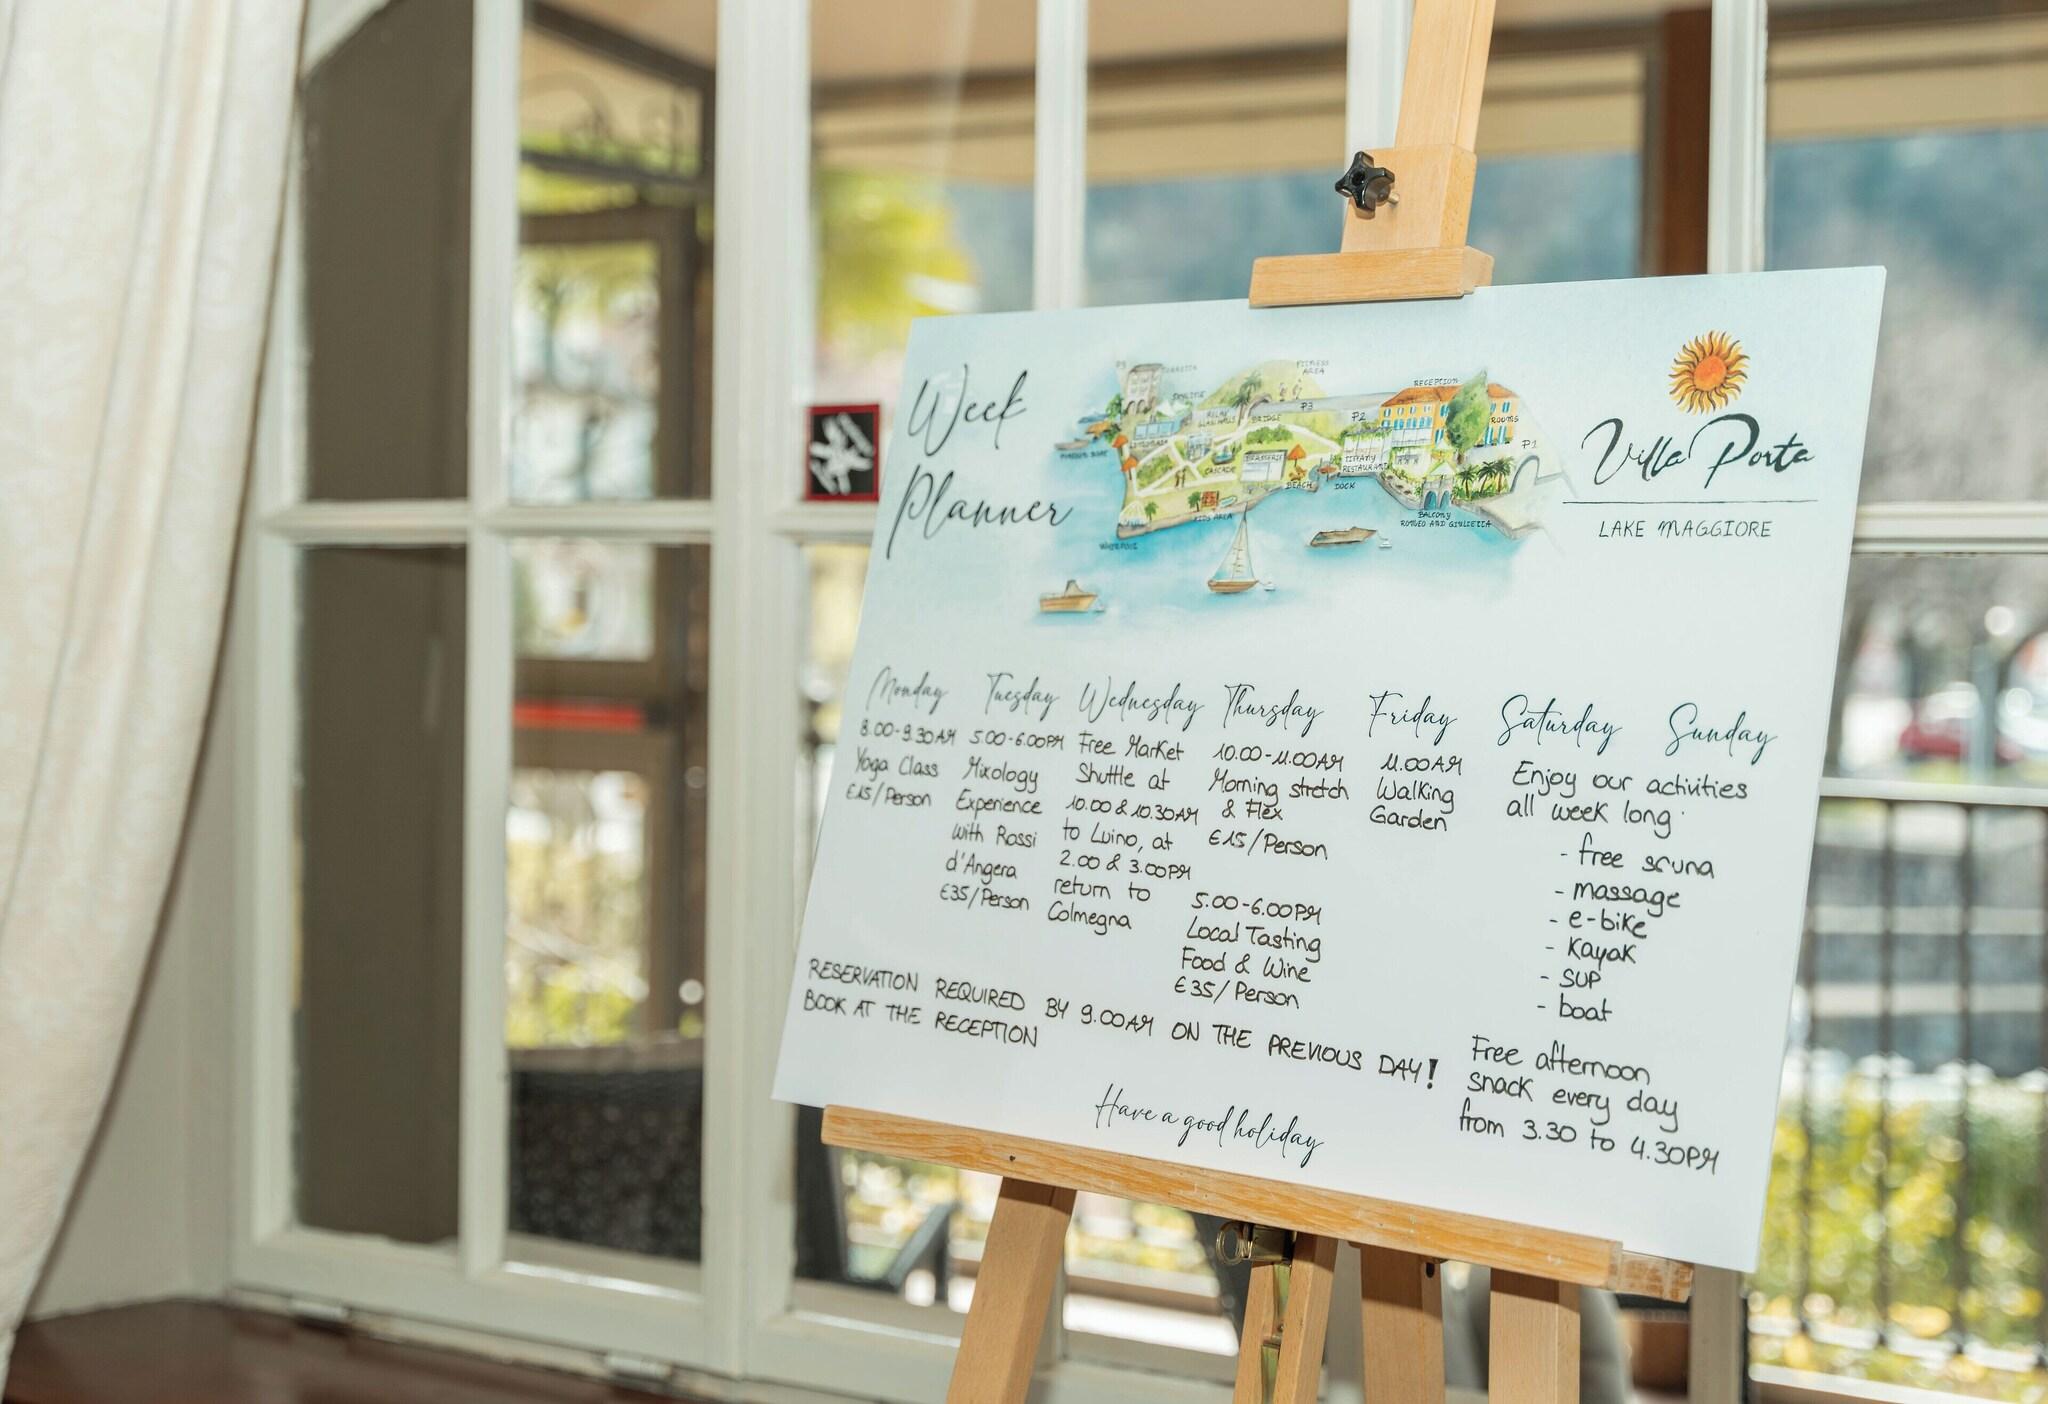 Week
Planner
P3
TORRETTA
SKYLINE
FITNESS
AREA
RELAX
BRIDGE
P3
P2
RECEPTION
ROOMS
P1
CASCADE
BRASSERIE
BEACH
TIFFANY
RESTAURANT
DOCK
KIDS AREA
BALCONY
ROMEO AND GIULIETTA
Villa Porta
LAKE MAGGIORE
Monday
8.00-9.30AM
Yoga Class
€15/Person
Tuesday
5.00-6.00PM
Mixology
Experience
with Rossi
d'Angera
€35/Person
Wednesday
Free Market
Shuttle at
10.00 & 10.30AM
to Luino, at
2.00 & 3.00PM
return to
Colmegna
Thursday
10.00-11.00AM
Morning stretch
& Flex
€15/Person
5.00-6.00PM
Local Tasting
Food & Wine
€35/Person
Friday
11.00AM
Walking
Garden
Saturday Sunday
Enjoy our activities
all week long:
- free sauna
- massage
- e-bike
- kayak
- SUP
- boat
Free afternoon
snack every day
from 3.30 to 4.30PM
RESERVATION REQUIRED BY 9.00AM ON THE PREVIOUS DAY!
BOOK AT THE RECEPTION
Have a good holiday